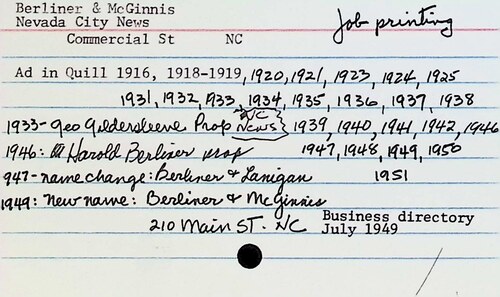 Berliner & McGinnis
Nevada City News
Job printing
Commercial St NC
Ad in Quill 1916, 1918-1919, 1920, 1921, 1923, 1924, 1925
1931, 1932, 1933, 1934, 1935, 1936, 1937, 1938
1933- Geo Gildersleeve Prop NC News 1939, 1940, 1941, 1942, 1946
1946: Harold Berliner prop 1947, 1948, 1949, 1950
947- name change: Berliner & Lanigan 1951
1949: New name: Berliner & McGinnis
210 Main ST. NC Business directory
July 1949